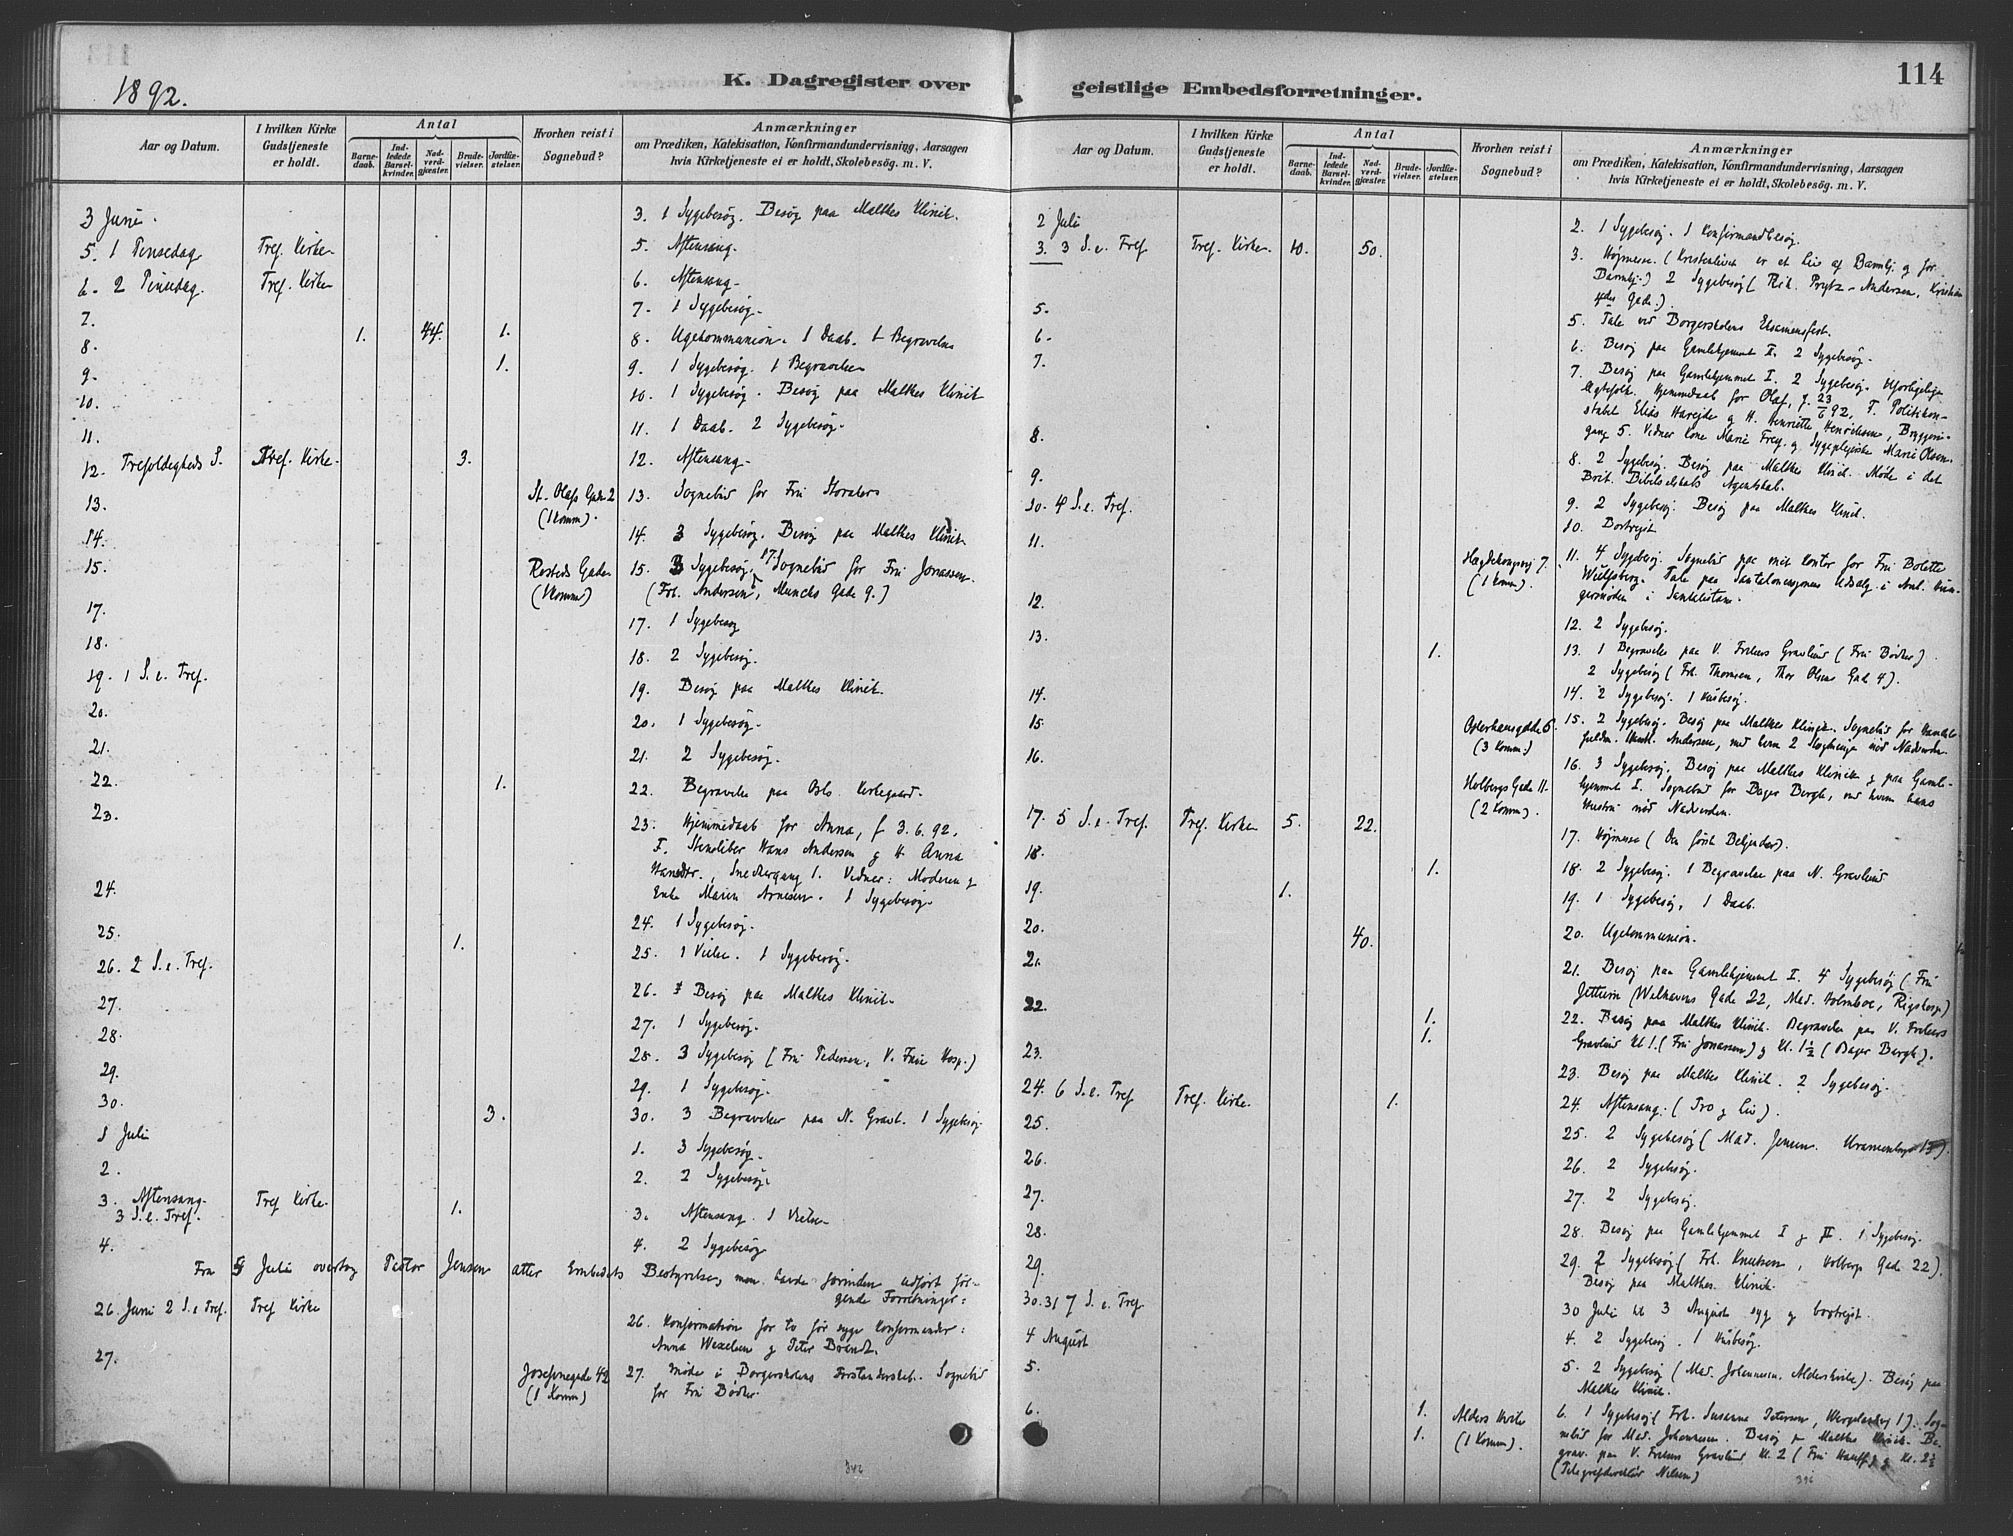 1892.
K. Dagregister over
Aar og Datum.
I hvilken Kirke Gudstjeneste er holdt.
Antal
Barne-daab.
Ind-ledede Barsel-kvinder.
Nad-verd-gjæster.
Brude-vielser.
Jordfæ-stelser.
Hvorhen reist i Sognebud?
Anmærkninger
om Prædiken, Katekisation, Konfirmandundervisning, Aarsagen
hvis Kirketjeneste ei er holdt, Skolebesög. m. V.
3 Juni. 3. 1 Sygebesøg. Besøg paa Malthes Klinik.
5. 1 Pinsedag Tref. Kirke 5. Aftensang.
6. 2 Pinsedag. Tref. Kirke 6. Aftensang.
7. 7. 1 Sygebesøg.
8. 1. 44. 1. 8. Ugekommunion. 1 Daab. 1 Begravelse
9. 1. 9. 1 Sygebesøg. 1 Begravelse
10. 10. 1 Sygebesøg. Besøg paa Malthes Klinik
11. 11. 1 Daab. 2 Sygebesøg.
12. Trefoldigheds S. Tref. Kirke. 3. 12. Aftensang.
13. St. Olafs Gade 2 (1 Komm). 13. Sognebud for Fru
14. 14. 3 Sygebesøg. Besøg paa Malthes Klinik
15. Rosteds Gade (1 Komm) 15. 3 Sygebesøg. 17. Sognebud for Fru Jonassen.
(Frk. Andersen, Munchs Gade 9.)
17. 17. 1 Sygebesøg
18. 18. 2 Sygebesøg.
19. 1 S. e. Tref. 19. Besøg paa Malthes Klinik.
20. 20. 1 Sygebesøg.
21. 21. 2 Sygebesøg.
22. 1. 22. Begravelse paa Kirkegaard.
23. 23. Hjemmedaab for Anna, f 3. 6. 92.
F. Stensliber Hans Andersen g H. Anna
Snedkergang 1. Vidner: Moderen g
24. Enke Maren Arnesen. 1 Sygebesøg.
24. 1 Sygebesøg.
25. 1. 25. 1 Vielse. 1 Sygebesøg.
26. 2 S. e. Tref. 26. Besøg paa Malthes Klinik.
27. 27. 1 Sygebesøg.
28. 28. 3 Sygebesøg (Fru Pedersen, V. Frue Hosp.)
29. 29. 1 Sygebesøg.
30. 3. 30. 3 Begravelser paa N. Gravl. 1 Sygebesøg
1 Juli 1. 3 Sygebesøg.
2. 2. 2 Sygebesøg.
3. Aftensang. 3 S. e. Tref. Tref Kirke. 1. 3. Aftensang. 1 Vielse
4. 4. 2 Sygebesøg
Fra Juli overtog Pastor Jensen atter Embedets Bestyrelse, men havde forinden udført føl-
gende Forretninger:
26. Juni 2 S. e Tref. Tref Kirke 26. Konfirmation for to før syge Konfirmander:
Anna Wexelsen g Peter Brandt.
27. Josefinegade 42 (1 Komm) 27. Møde i Borgerskolens Forstanderskab. Sognebud
for Fru Bødker
geistlige Embedsforretninger.
114
Aar og Datum.
I hvilken Kirke Gudstjeneste er holdt.
Antal
Barne-daab.
Ind-ledede Barsel-kvinder.
Nad-verd-gjæster.
Brude-vielser.
Jordfæ-stelser.
Hvorhen reist i Sognebud?
Anmærkninger
om Prædiken, Katekisation, Konfirmandundervisning, Aarsagen
hvis Kirketjeneste ei er holdt, Skolebesög. m. V.
2 Juli 2. 1 Sygebesøg. 1 Konfirmandbesøg.
3. 3 S. e. Tref Tref. Kirke. 10. 50. 3. Højmesse. (Kristenlivet er et Liv af Barmhj. g for
Barmhj.) 2 Sygebesøg (Rik. Prytz-Andersen, Kristian
4des Gade.)
5. 5. Tale ved Borgerskolens Eksamensfest.
6. 6. Besøg paa Gamlehjemmet I. 2 Sygebesøg.
7. 7. Besøg paa Gamlehjemmet I. 2 Sygebesøg. Uforligelige
Ægtefolk. Hjemmedaab for Olaf, f. 23/6 92, F. Politikon-
stabel Elias Harejde g H. Henriette Henriksen, Bryggeri-
gang 5. Vidner Kone Marie Frey g Sygeplejerske Marie Olsen.
8. 8. 2 Sygebesøg. Besøg paa Malthes Klinik. Møde i det
Brit. Bibelselskabs Agentskab.
9. 9. 2 Sygebesøg. Besøg paa Malthes Klinik.
10. 4 S. e. Tref. 10. Bortrejst.
11. Hegdehaugsvej 7. (1 Komm). 11. 4 Sygebesøg. Sognebud paa mit Kontor for Fru Bolette
Wulfsberg. Tale paa Santalmissionens Udsalg i Anl.
i Santalistan.
12. 12. 2 Sygebesøg.
13. 1. 13. 1 Begravelse paa V. Frelsers Gravlund (Fru Bødker)
2 Sygebesøg (Frk. Thomsen, Thor Olsens Gade 4).
14. 14. 2 Sygebesøg. 1 Husbesøg.
15 Osterhausgade 6 (3 Komm.) 15. 2 Sygebesøg. Besøg paa Malthes Klinik. Sognebud for
Andersen, med hvem 2 Slægtninge nød Nadverden.
16. Holbergs Gade 11. (2 Komm). 16. 3 Sygebesøg. Besøg paa Malthes Klinik g paa Gamle-
hjemmet I. Sognebud for Bager Bergh, med hvem hans
Hustru nød Nadverden.
17. 5 S. e. Tref. Tref. Kirke 5. 22. 17. Højmesse (Den første Betjender).
18. 1. 18. 2 Sygebesøg. 1 Begravelse paa N. Gravlund
19. 1. 19. 1 Sygebesøg, 1 Daab.
20. 40. 20. Ugekommunion.
21. 21. Besøg paa Gamlehjemmet I. 4 Sygebesøg (Fru
Welhavens Gade 22, Mad. Holmboe, Rigshosp.)
22. 1. 1. 22. Besøg paa Malthes Klinik. Begravelse paa V. Frelsers
Gravlund Kl 1. (Fru Jonassen) g Kl. 1½ (Bager Bergh).
23. 23. Besøg paa Malthes Klinik. 2 Sygebesøg.
24. 6 S. e. Tref Tref. Kirke. 1. 24. Aftensang. (Tro g Liv).
25. 25. 2 Sygebesøg (Mad. Jensen. Uranienborgv 13).
26. 26. 2 Sygebesøg.
27. 27. 2 Sygebesøg.
28. 28. Besøg paa Gamlehjemmet I g II. 1 Sygebesøg.
29. 29. 2 Sygebesøg (Frk. Knutsen, Holbergs Gade 22).
Besøg paa Malthes Klinik.
30. 31 7 S. e. Tref 30 Juli til 3 August syg g bortrejst.
4 August 4. 2 Sygebesøg. 1 Husbesøg.
5. 5. 2 Sygebesøg (Mad. Johannesen. Aldershvile). Besøg paa
Malthes Klinik.
6. 1. 1. Alders Hvile (1 Komm). 6. 1 Sygebesøg (Frk. Susanne Petersen, Wergelandsvej 1). Sog-
nebud for Mad. Johannesen. Besøg p Malthes Klinik. Be-
grav. paa V. Frelsers Gravlund Kl. 2 (Fru Hauff) g Kl. 2½
(Telegrafdirektør Nielsen)